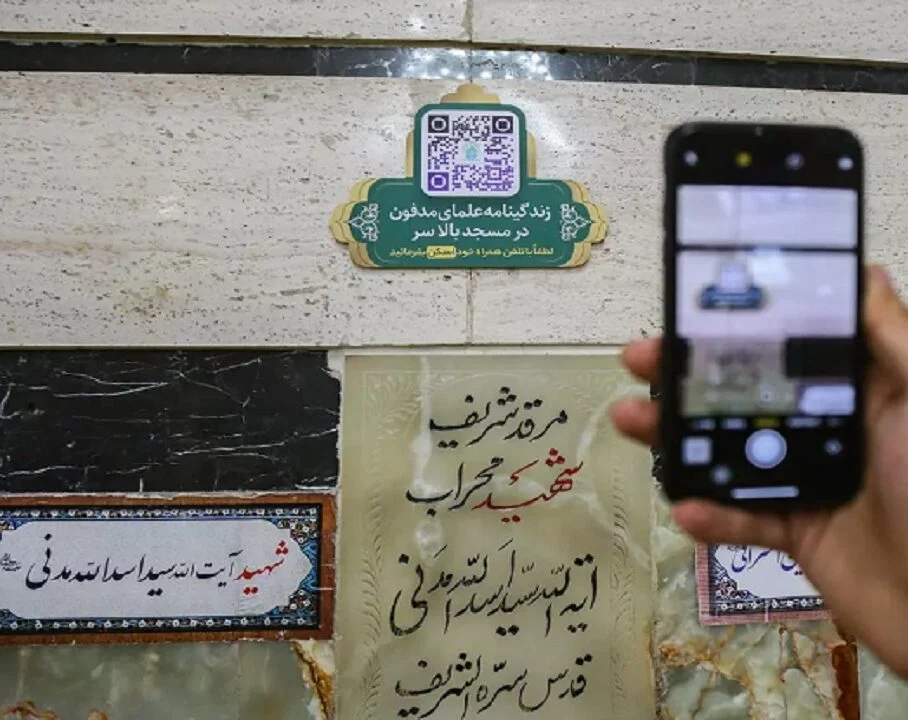 زندگینامه علمای مدفون
در مسجد بالا سر
لطفاً با تلفن همراه خود اسکن بفرمائید
مرقد شریف
شهید محراب
آیة اللّه سید اسد اللّه مدنی
قدس سرّه الشریف
شهید آیت الله سید اسد الله مدنی